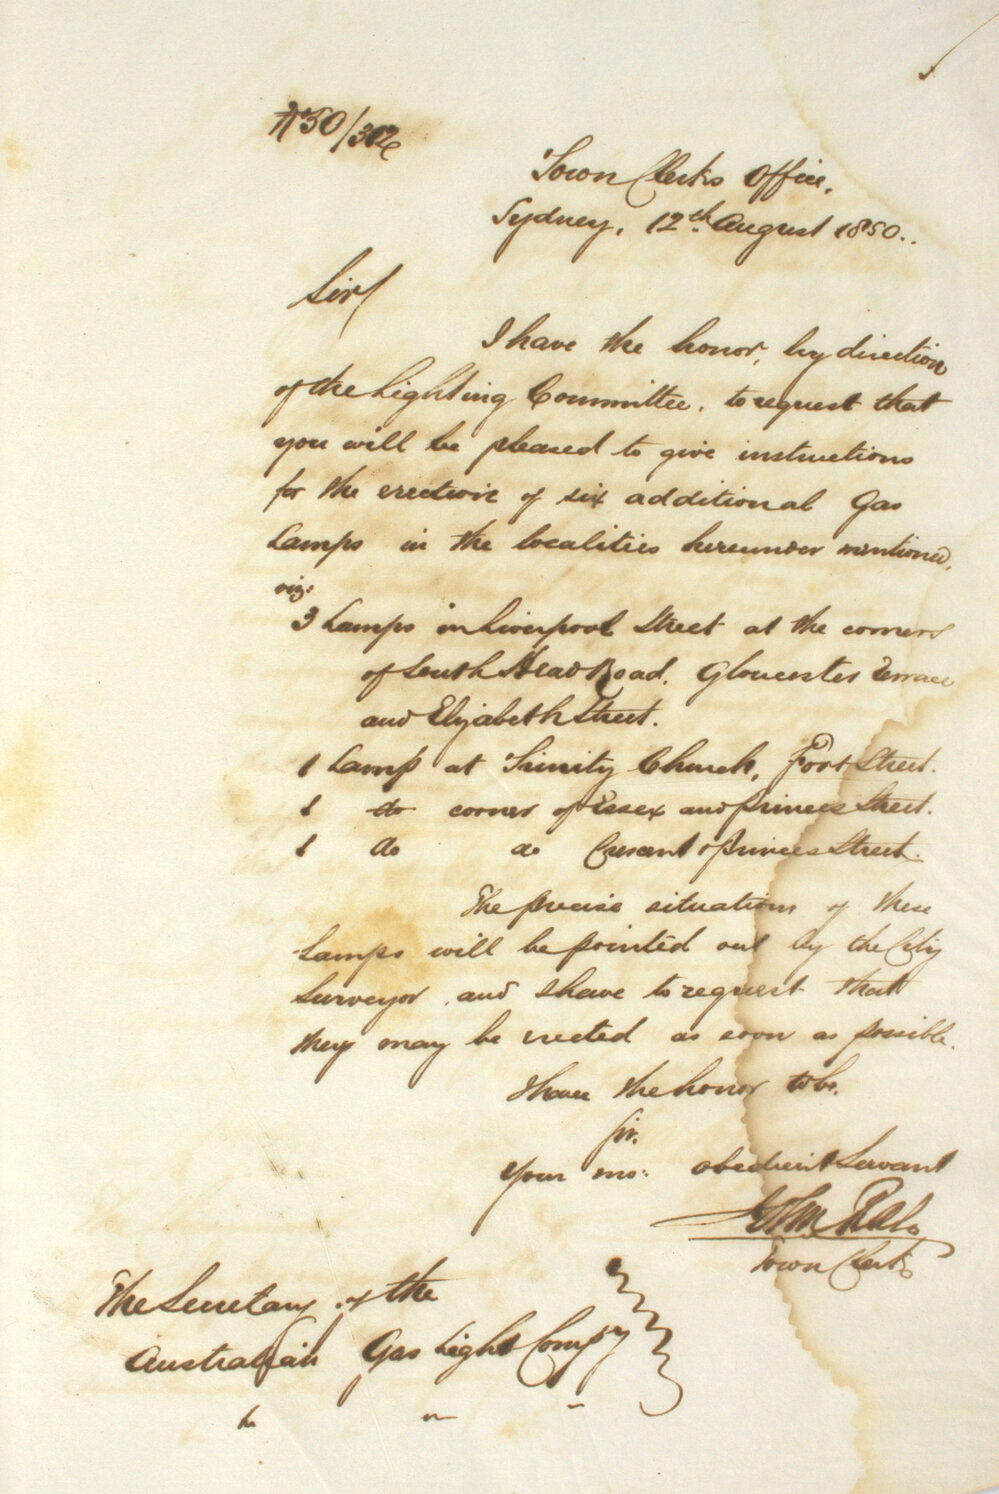 50/302
Town Clerk's Office,
Sydney, 12th August 1850..
Sir/
I have the honor, by direction
of the Lighting Committee, to request that
you will be pleased to give instructions
for the erection of six additional Gas
Lamps in the localities hereunder mentioned,
viz:
3 Lamps in Liverpool Street at the corners
of South Head Road, Gloucester Terrace
and Elizabeth Street.
1 Lamp at Trinity Church, Fort Street.
1 do corner of Essex and Princes Street.
1 do do Cresant & Princes Street.
The precise situations of these
Lamps will be pointed out by the City
Surveyor, and I have to request that
they may be erected as soon as possible.
I have the honor to be,
Sir,
Your mo: obedient Servant
Town Clerk
The Secretary of the
Australian Gas Light Compy